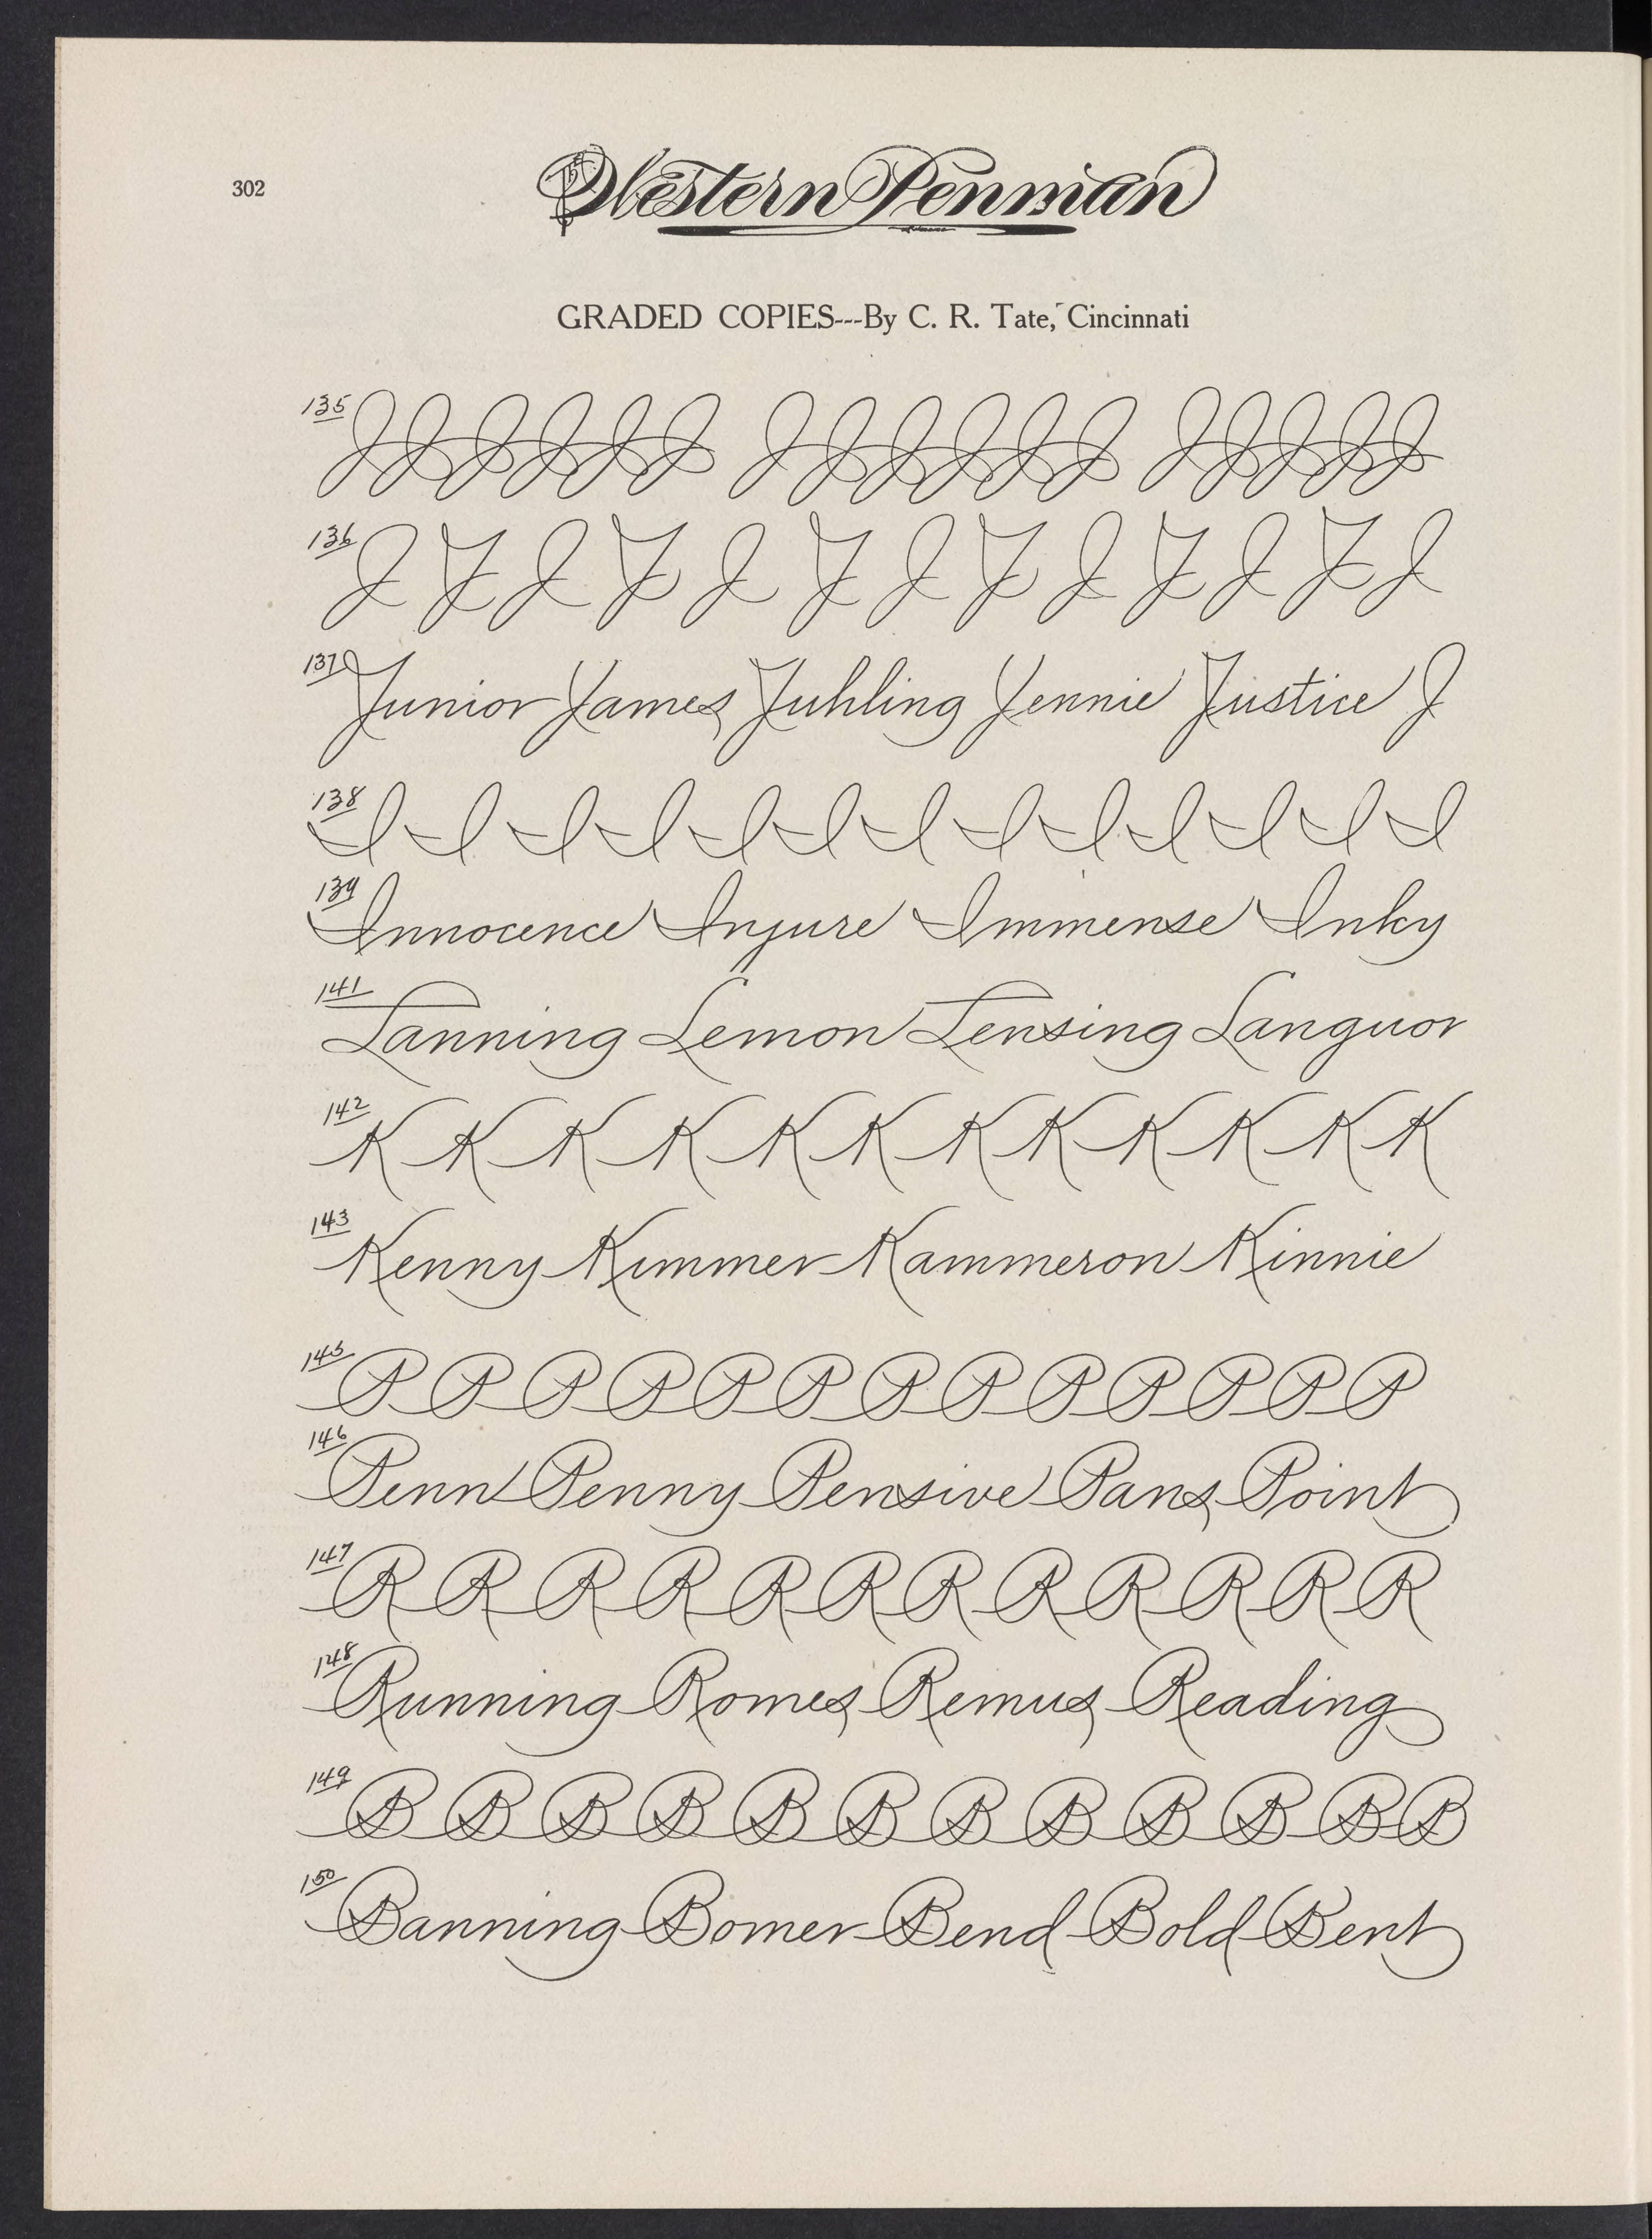 302
The Western Penman
GRADED COPIES---By C. R. Tate, Cincinnati
135 J J J J J J J J J J J J J J J J J
136 J J J J J J J J J J J J J
137 Junior James Juhling Jennie Justice J
138 I I I I I I I I I I I I I
139 Innocence Injure Immense Inky
141 Lanning Lemon Lensing Languor
142 K K K K K K K K K K K K
143 Kenny Kummer Kammeron Kinnie
145 P P P P P P P P P P P P P
146 Penn Penny Pensive Pans Point
147 R R R R R R R R R R R R
148 Running Romes Remus Reading
149 B B B B B B B B B B B B
150 Banning Bomer Bend Bold Bent